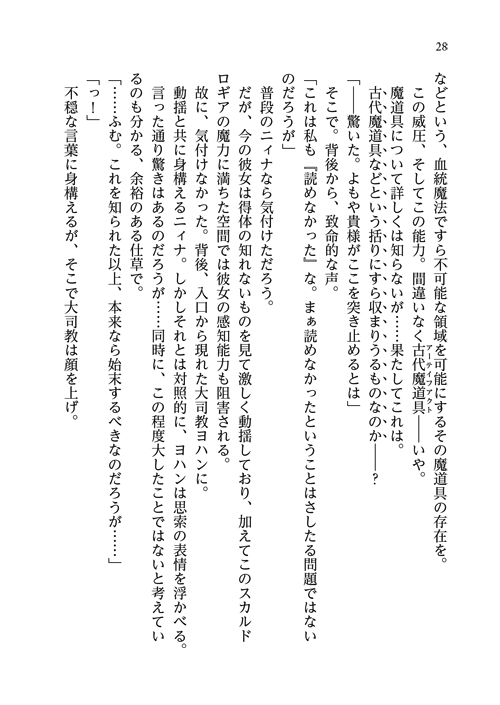 28
などという、血統魔法ですら不可能な領域を可能にするその魔道具の存在を。
この威圧、そしてこの能力。間違いなく古代魔道具――いや。
アーティファクト
魔道具について詳しくは知らないが……果たしてこれは。
古代魔道具などという括りにすら収まりうるものなのか――？
「――驚いた。よもや貴様がここを突き止めるとは」
そこで。背後から、致命的な声。
「これは私も『読めなかった』な。まぁ読めなかったということはさしたる問題ではない
のだろうが」
普段のニィナなら気付けただろう。
だが、今の彼女は得体の知れないものを見て激しく動揺しており、加えてこのスカルド
ロギアの魔力に満ちた空間では彼女の感知能力も阻害される。
故に、気付けなかった。背後、入口から現れた大司教ヨハンに。
動揺と共に身構えるニィナ。しかしそれとは対照的に、ヨハンは思索の表情を浮かべる。
言った通り驚きはあるのだろうが……同時に、この程度大したことではないと考えてい
るのも分かる、余裕のある仕草で。
「……ふむ。これを知られた以上、本来なら始末するべきなのだろうが……」
「っ！」
不穏な言葉に身構えるが、そこで大司教は顔を上げ。